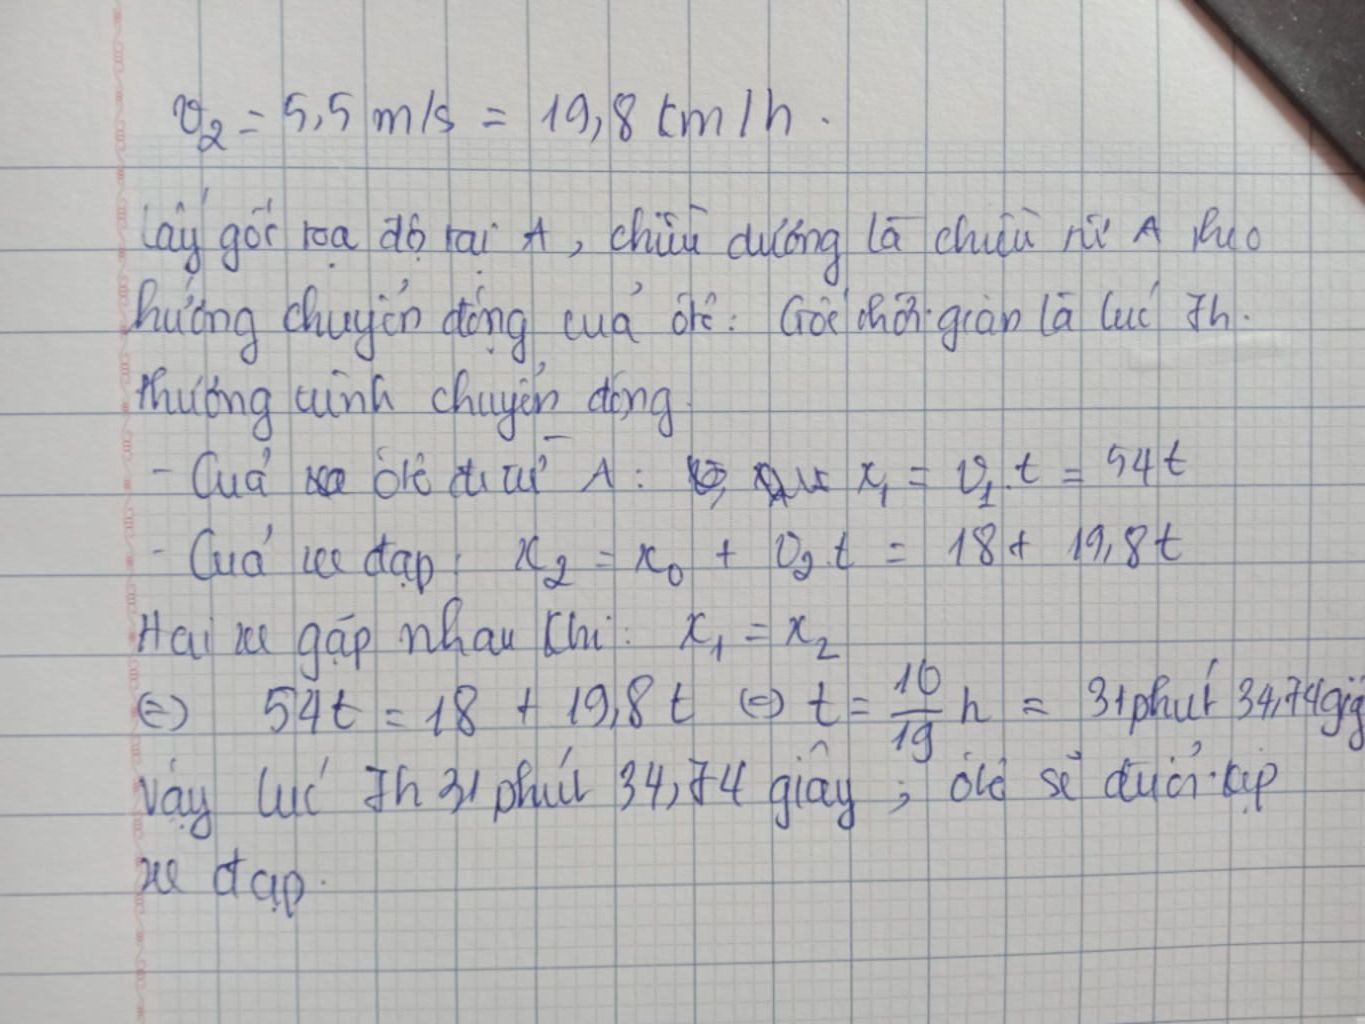 v₂ = 5,5 m/s = 19,8 km/h.
Lấy gốc tọa độ tại A, chiều dương là chiều từ A theo
hướng chuyển động của ôtô. Gốc thời gian là lúc 7h.
Phương trình chuyển động.
- Của ôtô đi từ A: x₁ = v₁.t = 54t
- Của xe đạp: x₂ = x₀ + v₂.t = 18 + 19,8t
Hai xe gặp nhau khi: x₁ = x₂
⇔ 54t = 18 + 19,8t ⇔ t = 10/19 h = 31 phút 34,74 giâ
Vậy lúc 7h 31 phút 34,74 giây, ôtô sẽ đuổi kịp
xe đạp.